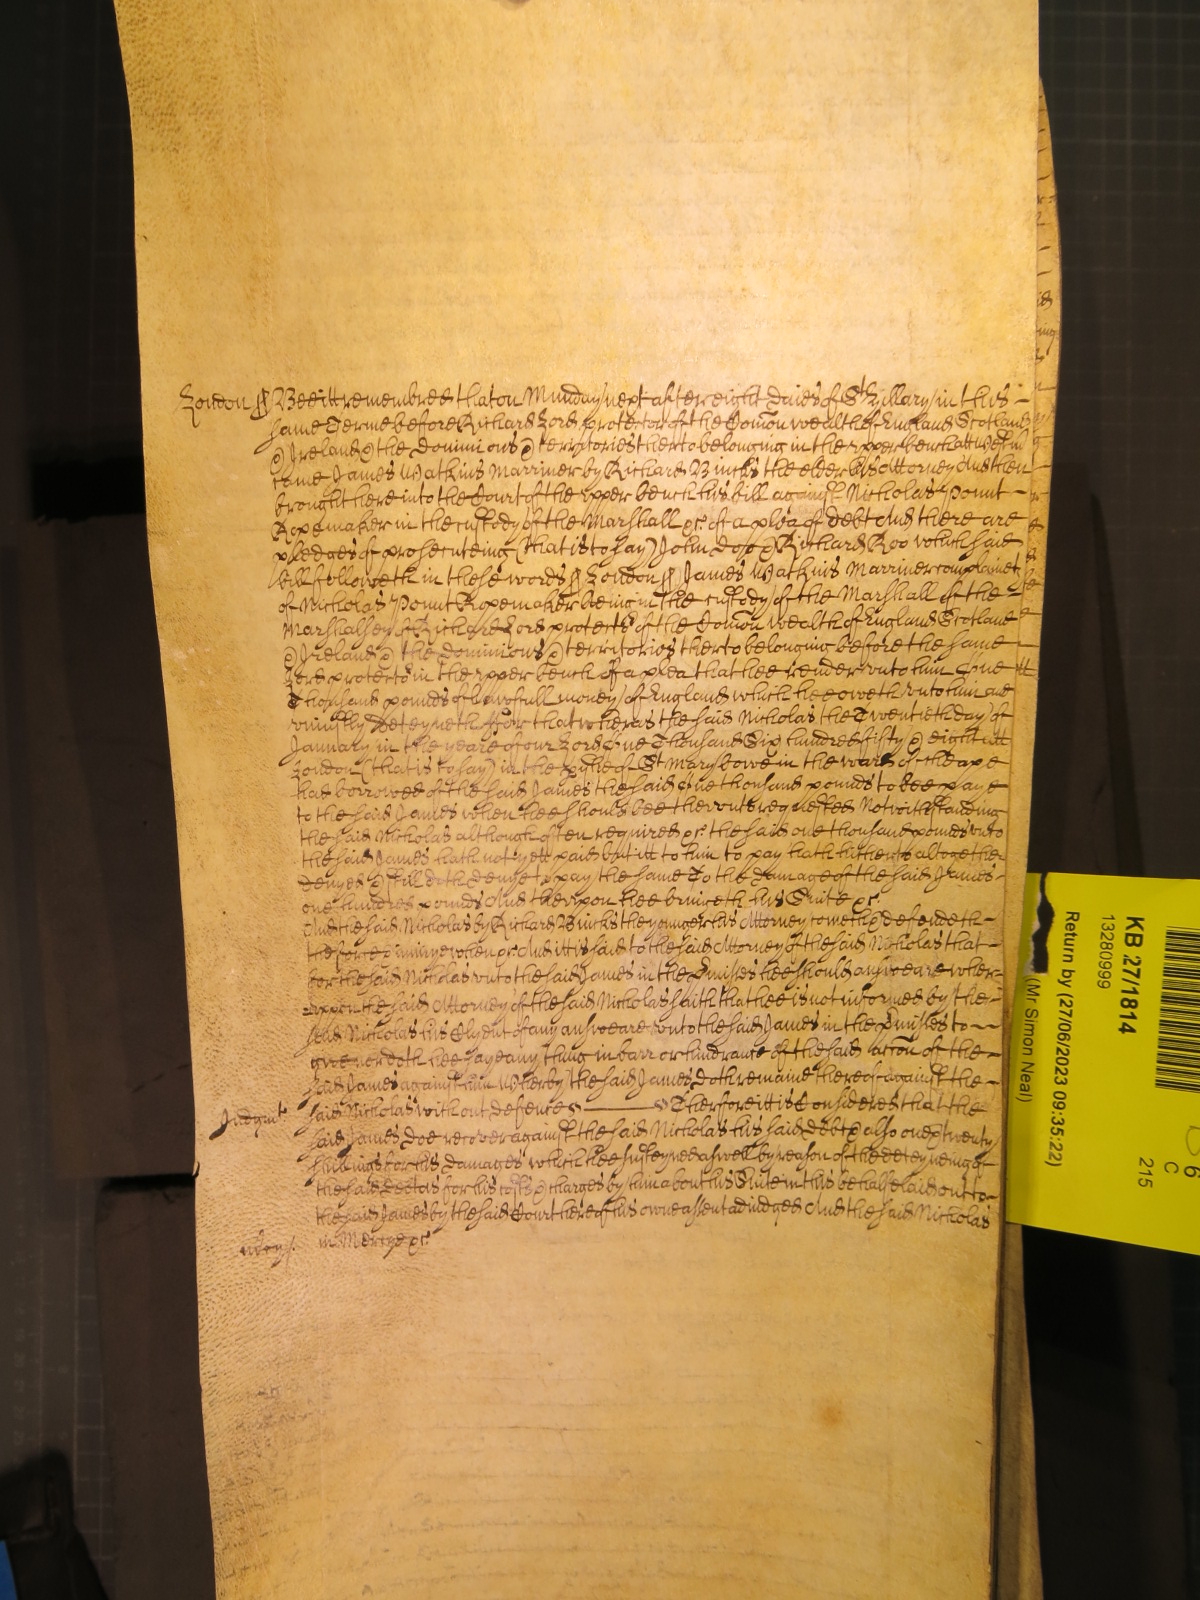 London ss Bee itt remembred that on Munday next after eight daies of St Hillary in this
same Terme before Richard Lord protector of the Comon wealth of England Scotland
& Ireland & the dominions & territories therto belonging in the upper bench att Westm
came James Watkins Marriner by Richard Bincks the elder his Attorney And then
brought here into the Court of the upper bench his bill against Nicholas Pount
Ropemaker in the custody of the Marshall &c of a plea of debt And there are
pledges of prosecuteing (that is to say) John Doo & Richard Roo which said
bill followeth in these words ss London ss James Watkins Marriner complaineth
of Nicholas Pount Ropemaker being in the custody of the Marshall of the
Marshalsey of Richard Lord protector of the Comon wealth of England Scotland
& Ireland & the dominions & territories therto belonging before the same
Lord protector in the upper bench of a plea that hee render unto him One
Thousand pounds of lawfull money of England which hee oweth unto him and
uniustly deteyneth For that wheras the said Nicholas the Twentieth day of
January in the yeare of our Lord One Thousand Six hundred fifty & eight att
London (that is to say) in the pishe of St Mary bowe in the ward of Cheape
had borrowed of the said James the said One thousand pounds to bee payd
to the said James when hee should bee therunto requested Notwithstanding
the said Nicholas although often required &c the said one thousand pounds unto
the said James hath not yett paid but itt to him to pay hath hitherto altogether
denyed & still doth deny to pay the same To the damage of the said James
one hundred pounds And therupon hee bringeth his Suite &c
And the said Nicholas by Richard Bincks the younger his Attorney cometh & defendeth
the force & iniurye when &c And itt is said to the said Attorney of the said Nicholas that
for the said Nicholas unto the said James in the Pmisses hee should answeare wher-
uppon the said Attorney of the said Nicholas saith that hee is not informed by the
said Nicholas his Clyent of any answeare unto the said James in the Pmisses to
give nor doth hee say any thing in barr or hindrance of the said accon of the
said James against him Wherby the said James doth remaine thereof against the
Judgmt said Nicholas without defence Therfore itt is Considered that the
said James doe recover against the said Nicholas his said debt & also one & twenty
shillings for his damages which hee susteyned as well by reason of the deteyneing of
the said debt as for his costs & charges by him about his Suite in this behalfe laid out to
the said James by the said Court here of his owne assent adiudged And the said Nicholas
in Mercye &c
mercy
KB 27/1814
13280999
Return by (27/06/2023 09:35:22)
(Mr Simon Neal)
6
C
215